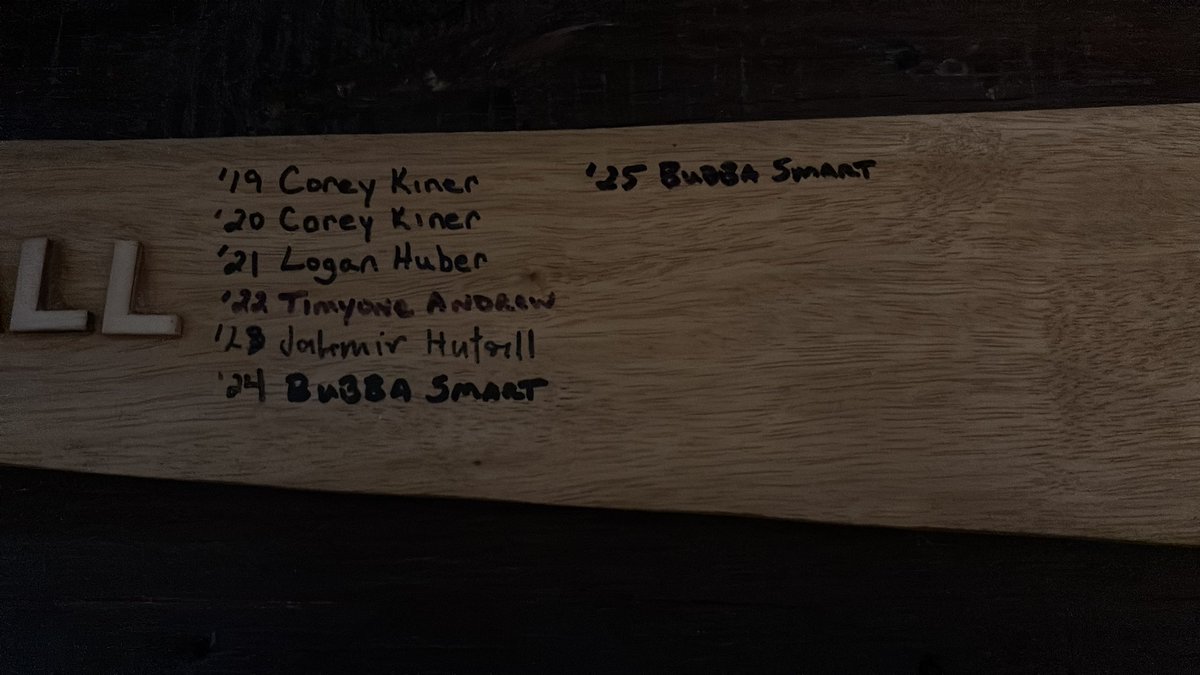 LL
'19 Corey Kiner
'20 Corey Kiner
'21 Logan Huber
'22 Timyone ANDREW
'23 Jahmir Hutsill
'24 BUBBA SMART
'25 BUBBA SMART